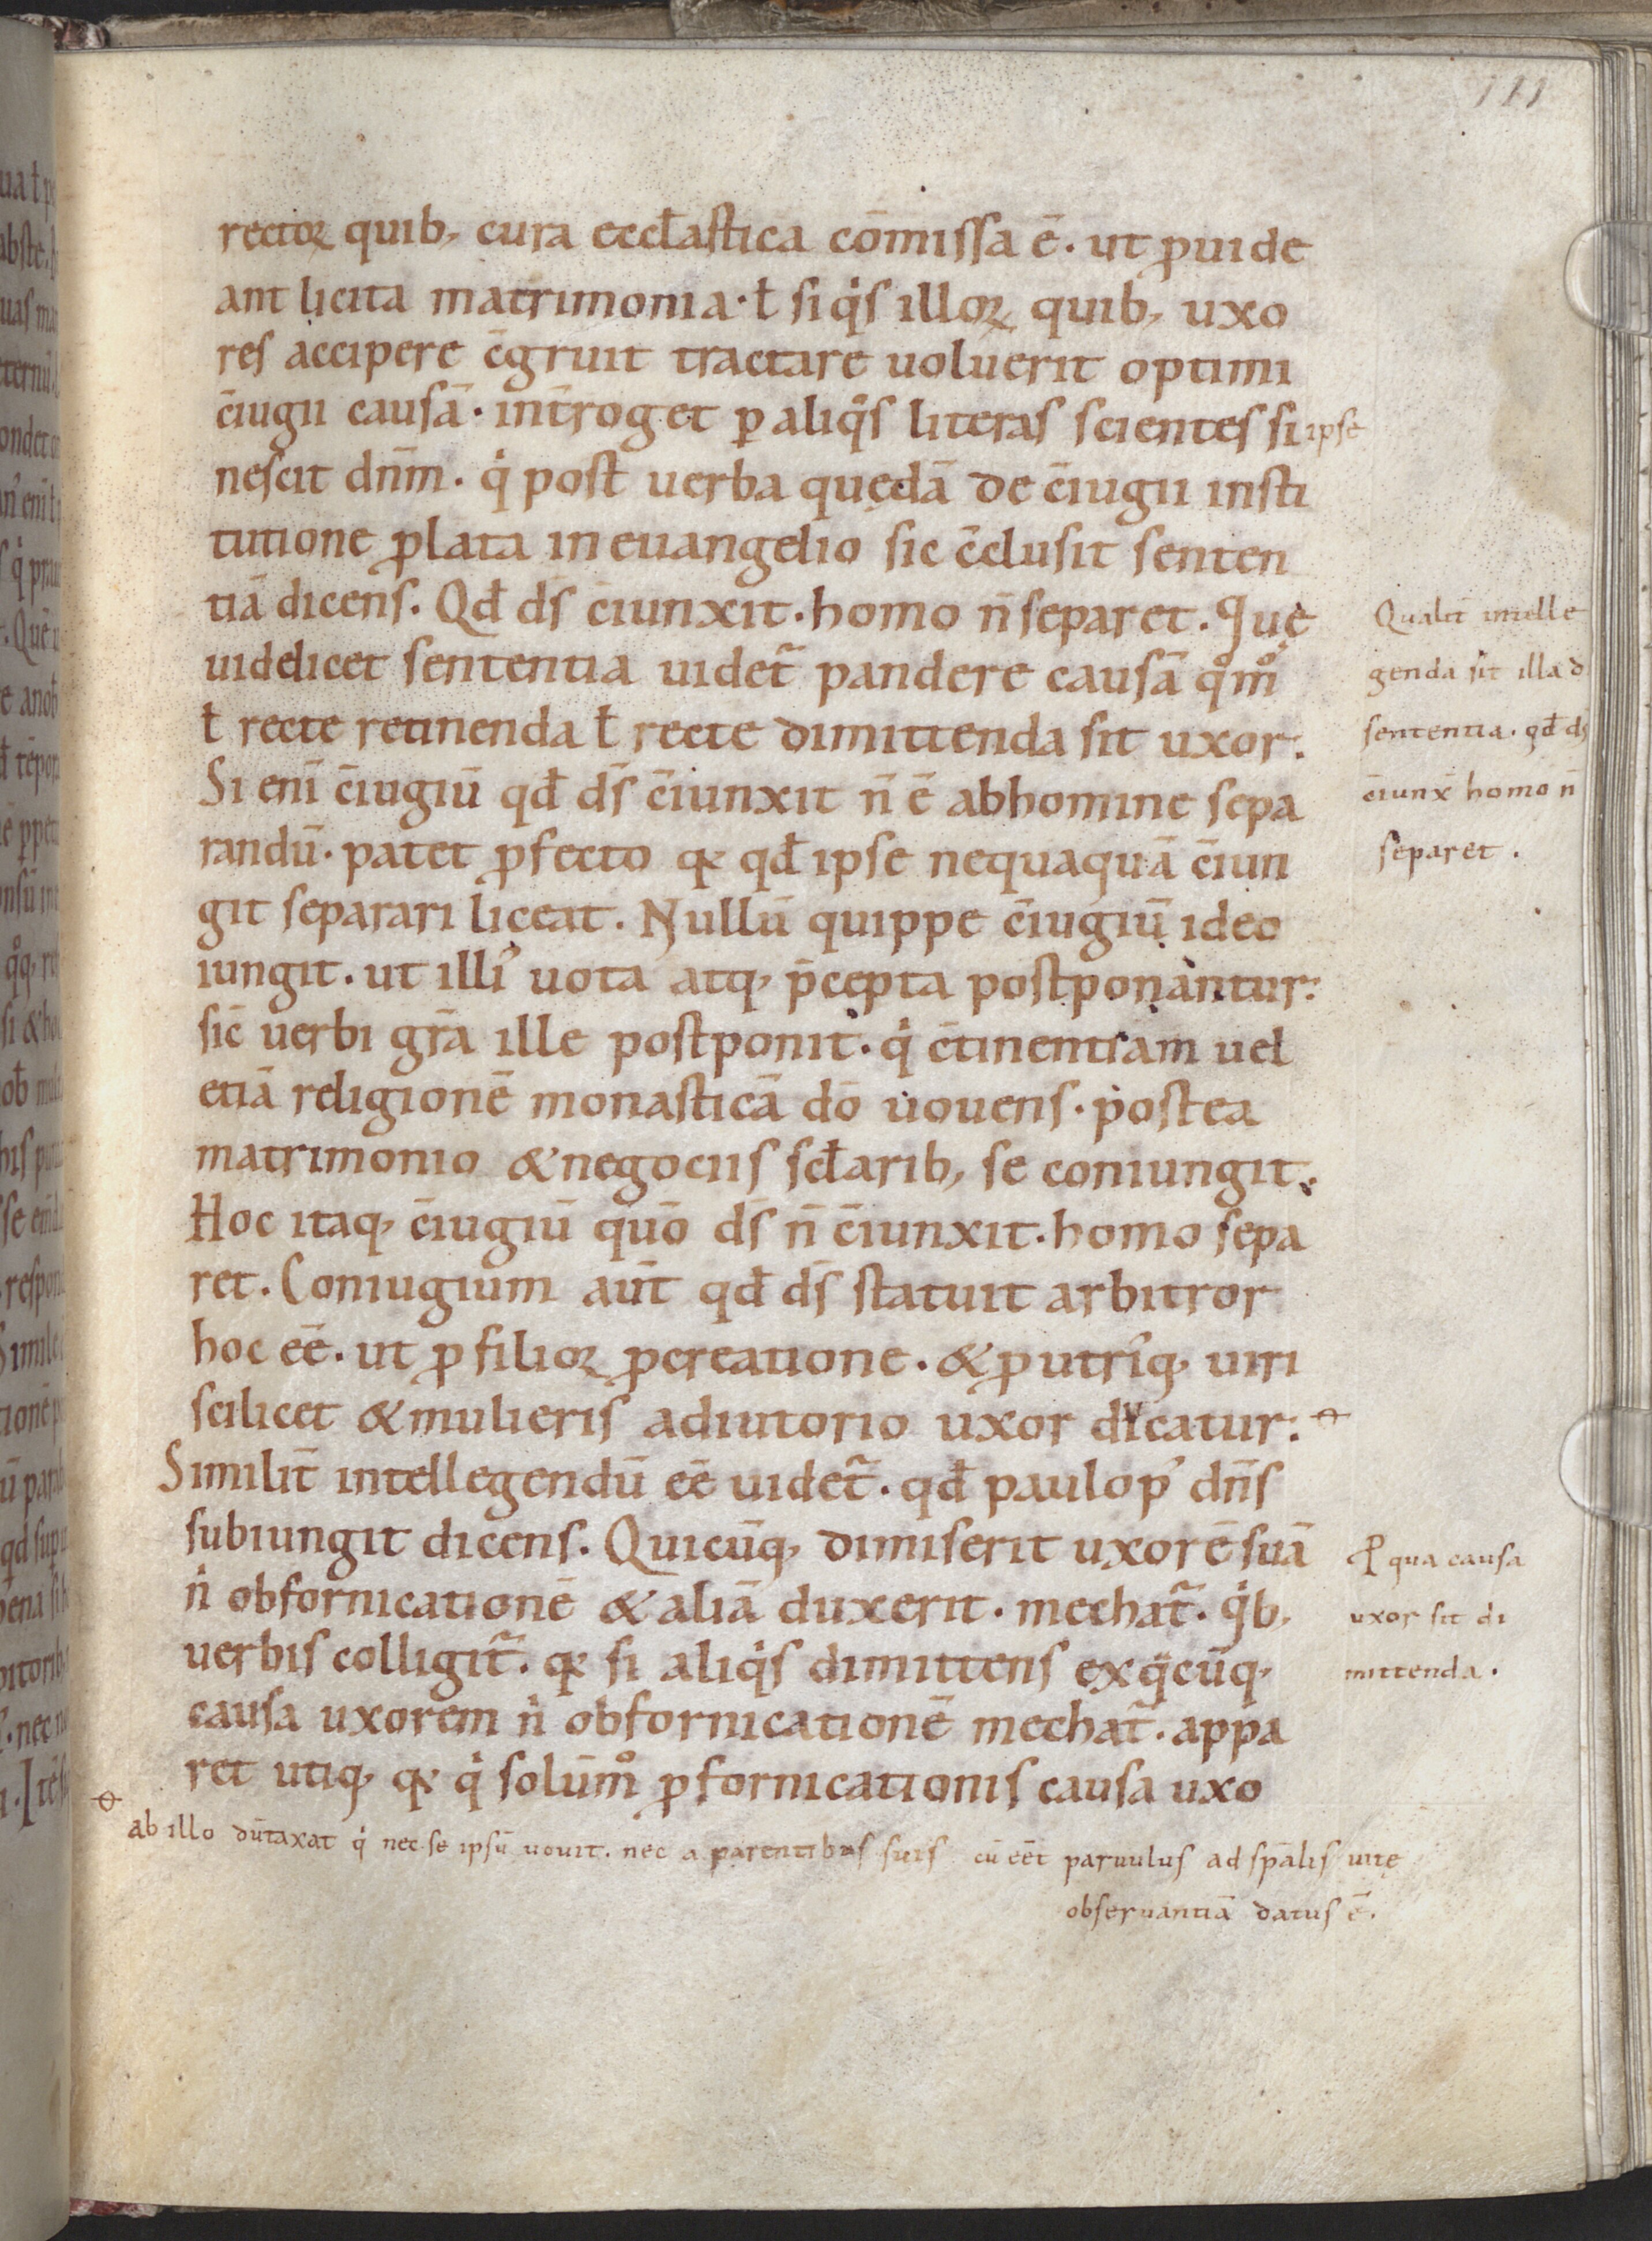 111
rectoꝝ quib; cura eccƚastica cōmissa ē. ut ꝓuide
ant licita matrimonia. ƚ siqͥs illoꝝ quib; uxo
res accipere c̄gruit tractare uoluerit optimi
c̄iugii causā. int̄roget ꝑ aliqͦs literas scientes si ipse
nescit dn̄m. qͥ post uerba quędā de c̄iugii insti
tutione ꝓlata in euangelio sic c̄clusit senten
tiā dicens. Qđ ds̄ c̄iunxit. homo n̄ separet. Quę
uidelicet sententia uidet᷑ pandere causā qͦmͦ
ƚ recte retinenda ƚ recte dimittenda sit uxor.
Si eni̅ c̄iugiū qđ ds̄ c̄iunxit n̄ ē abhomine sepa
randū. patet ꝓfecto qꝛ qđ ipse nequaquā c̄iun
git separari liceat. Nullū quippe c̄iugiū ideo
iungit. ut illiꝰ uota atq; p̄cepta postponantur:
sic̄ uerbi gr̄a ille postponit. qͥ c̄tinentiam uel
etiā religionē monasticā dō uouens. postea
matrimonio & negociis scƚarib; se coniungit.
Hoc itaq; c̄iugiū quō ds̄ n̄ c̄iunxit. homo sepa
ret. Coniugium aut̄ qđ ds̄ statuit arbitror
hoc eē. ut ꝓ filioꝝ ꝓcreatione. & ꝓ utriꝰq; uiri
scilicet & mulieris adiutorio uxor ducatur:
Similit̄ intellegendū eē uidet᷑. qđ paulopꝰ dn̄s
subiungit dicens. Quicūq; dimiserit uxorē suā
nͥ obfornicationē & aliā duxerit. mechat᷑. qͥb;
uerbis colligit᷑. qꝛ si aliqͥs dimittens exqͣcūq;
causa uxorem nͥ obfornicationē mechat᷑. appa
ret utiq; qꝛ qͥ solūmͦ ꝓ fornicationis causa uxo
ab illo dūtaxat qͥ nec se ipsū uouit. nec a parentibus suis cū eēt paruulus ad sp̄alis uitę
obseruantiā datus ē.
Qualit̄ intelle
genda sit illa d
sententia. qđ ds̄
c̄iunx̄ homo n̄
separet.
Ꝓ qua causa
uxor sit di
mittenda.